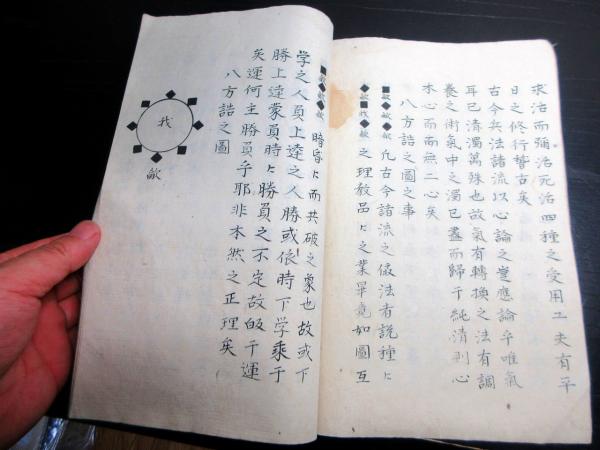 求治而弥治死治四種之受用工夫有平
日之修行誓古矣
古今兵法諸流以心論之豈應論乎唯氣
耳已清濁萬殊也故氣有轉換之法有調
養之術氣中之濁已盡而歸于純清則心
木心而而無二心矣
八方詰之圖之事
■歒◆歒◆歒 凢古今諸流之儀法有説種々
◆歒■我◆歒 之理教品々之業畢竟如圖互
■歒◆歒◆歒 暗昏々而共破之象也故或下
学之人員上達之人勝或依時下学乗于
勝上達蒙員時々勝員之不定故皈于運
矣運何主勝員乎耶非本然之正理矣
八方詰之圖
我
歒